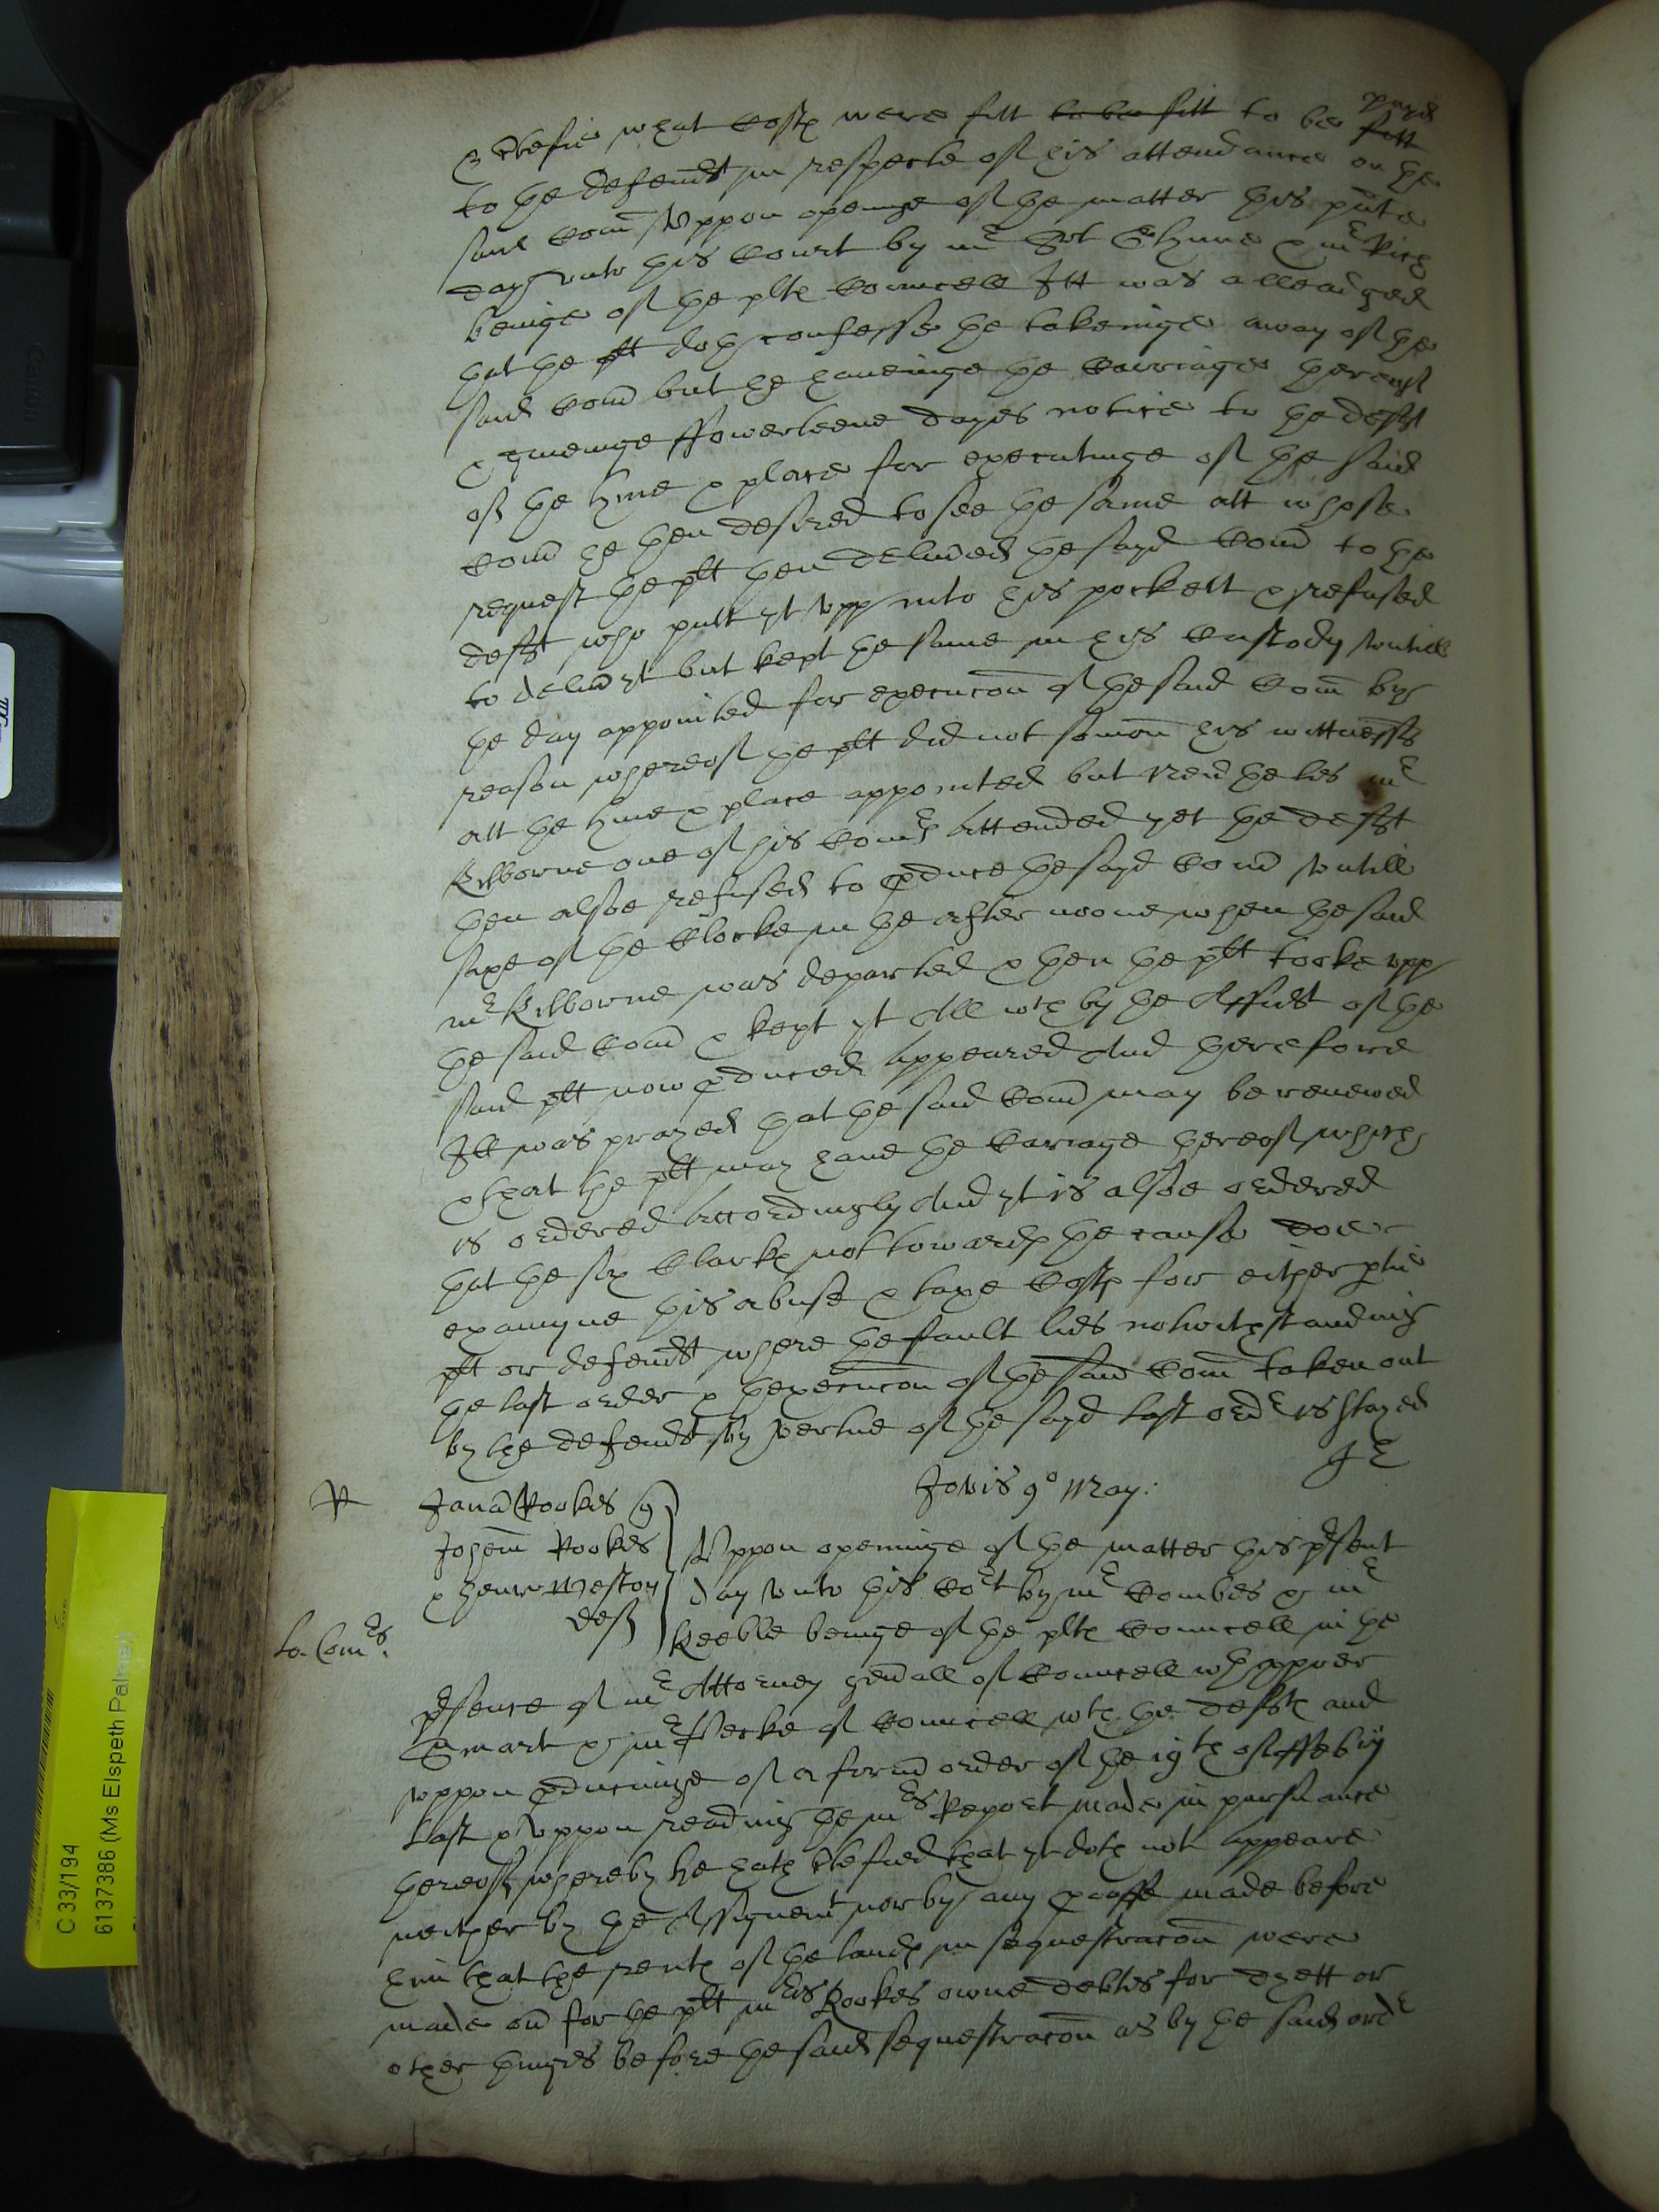 & Certefie what costs were fitt to be fitt to be fitt payd
to the defendt in respecte of his attendance on the
said Com Uppon openinge of the matter this pnte
day unto this Court by mr & mr Rich
beinge of the plts Councell Itt was alleadged
that the plt doth confesse the takeinge away of the
said Com but he haveinge the Carriage thereof
& giveinge ffowerteene dayes notice to the defft
of the tyme & place for executinge of the said
Com he then desired to see the same att whose
request the plt then delivred the sayd Com to the
defft who putt yt upp into his pockett & refused
to delivr yt but kept the same in his Custody untill
the day appointed for execucon of the said Com by
reason whereof the plt did not somon his wittnesses
att the tyme & place appointed but nevertheles mr
Kilborne one of his Comrs Attended yet the defft
then alsoe refused to produce the sayd Com untill
sixe of the Clocke in the afternoone when the said
mr Kilborne was departed & then the plt tooke upp
the said Com & kept yt All wch by the Affidt of the
said plt now produced Appeared And therefore
Itt was prayed that the said Com may be renewed
& that the plt may have the Cariage thereof which
is ordered Accordingly And yt is alsoe ordered
that the six Clarks not towards the cause doe
examyne this abuse & taxe Costs for either ptie
plt or defendt where the fault lies notwithstanding
the last order & thexecucon of the said Com taken out
by the defendt by vertue of the sayd last ordr is stayed
Jovis 9o May.
R
Jana Rookes q
Johem Rookes
& Henr Weston
deff
to. Comrs.
Uppon openinge of the matter this psent
day unto this Cort by mr Combes & mr
Keeble beinge of the plts Councell in the
psence of mr Attorney genrall of Councell wth
Smart & mr Pecke of Councell wth the deffts and
uppon producinge of a formr order of the 19th of ffebry
last & Uppon reading the mrs Report made in pursuance
thereof whereby he hath Certefied that yt doth not appeare
neither by the Assignemt nor by any prooffe made before
him that the rents of the lands in sequestracon were
made over for the plt mrs Rookes owne debtes for dyett or
other thinges before the said sequestracon as by the said ordr
C 33/194
6137386 (Ms Elspeth Palmer)
Canon